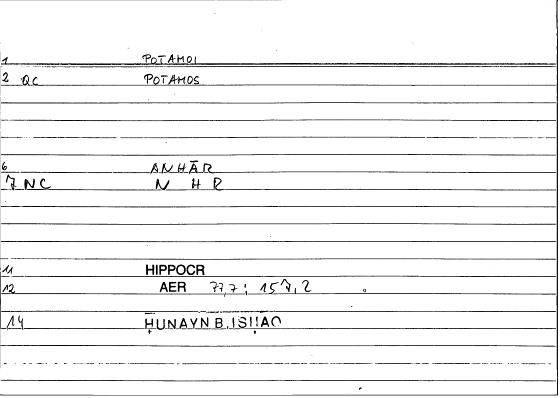 1 POTAMOI
2 QC POTAMOS
6 ANHĀR
7 NC N H R
11 HIPPOCR
12 AER 77,7; 157,2
14 ḤUNAYN B. ISḤĀQ